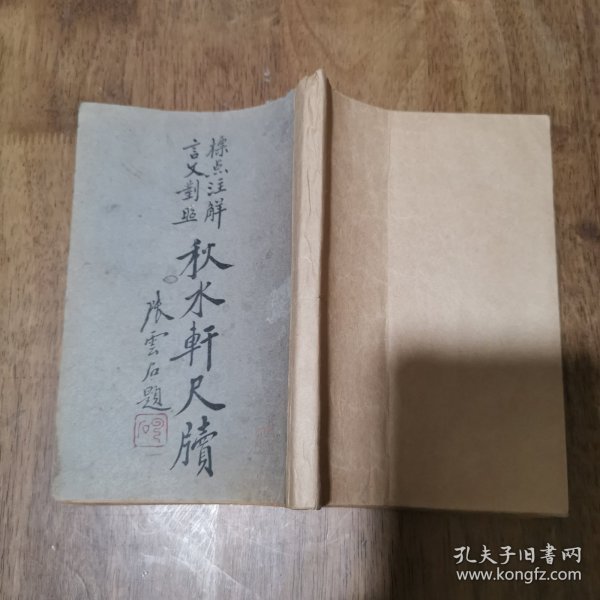 標点注解
言文對照
秋水軒尺牘
張雲石題
孔夫子旧書网
www.kongfz.com